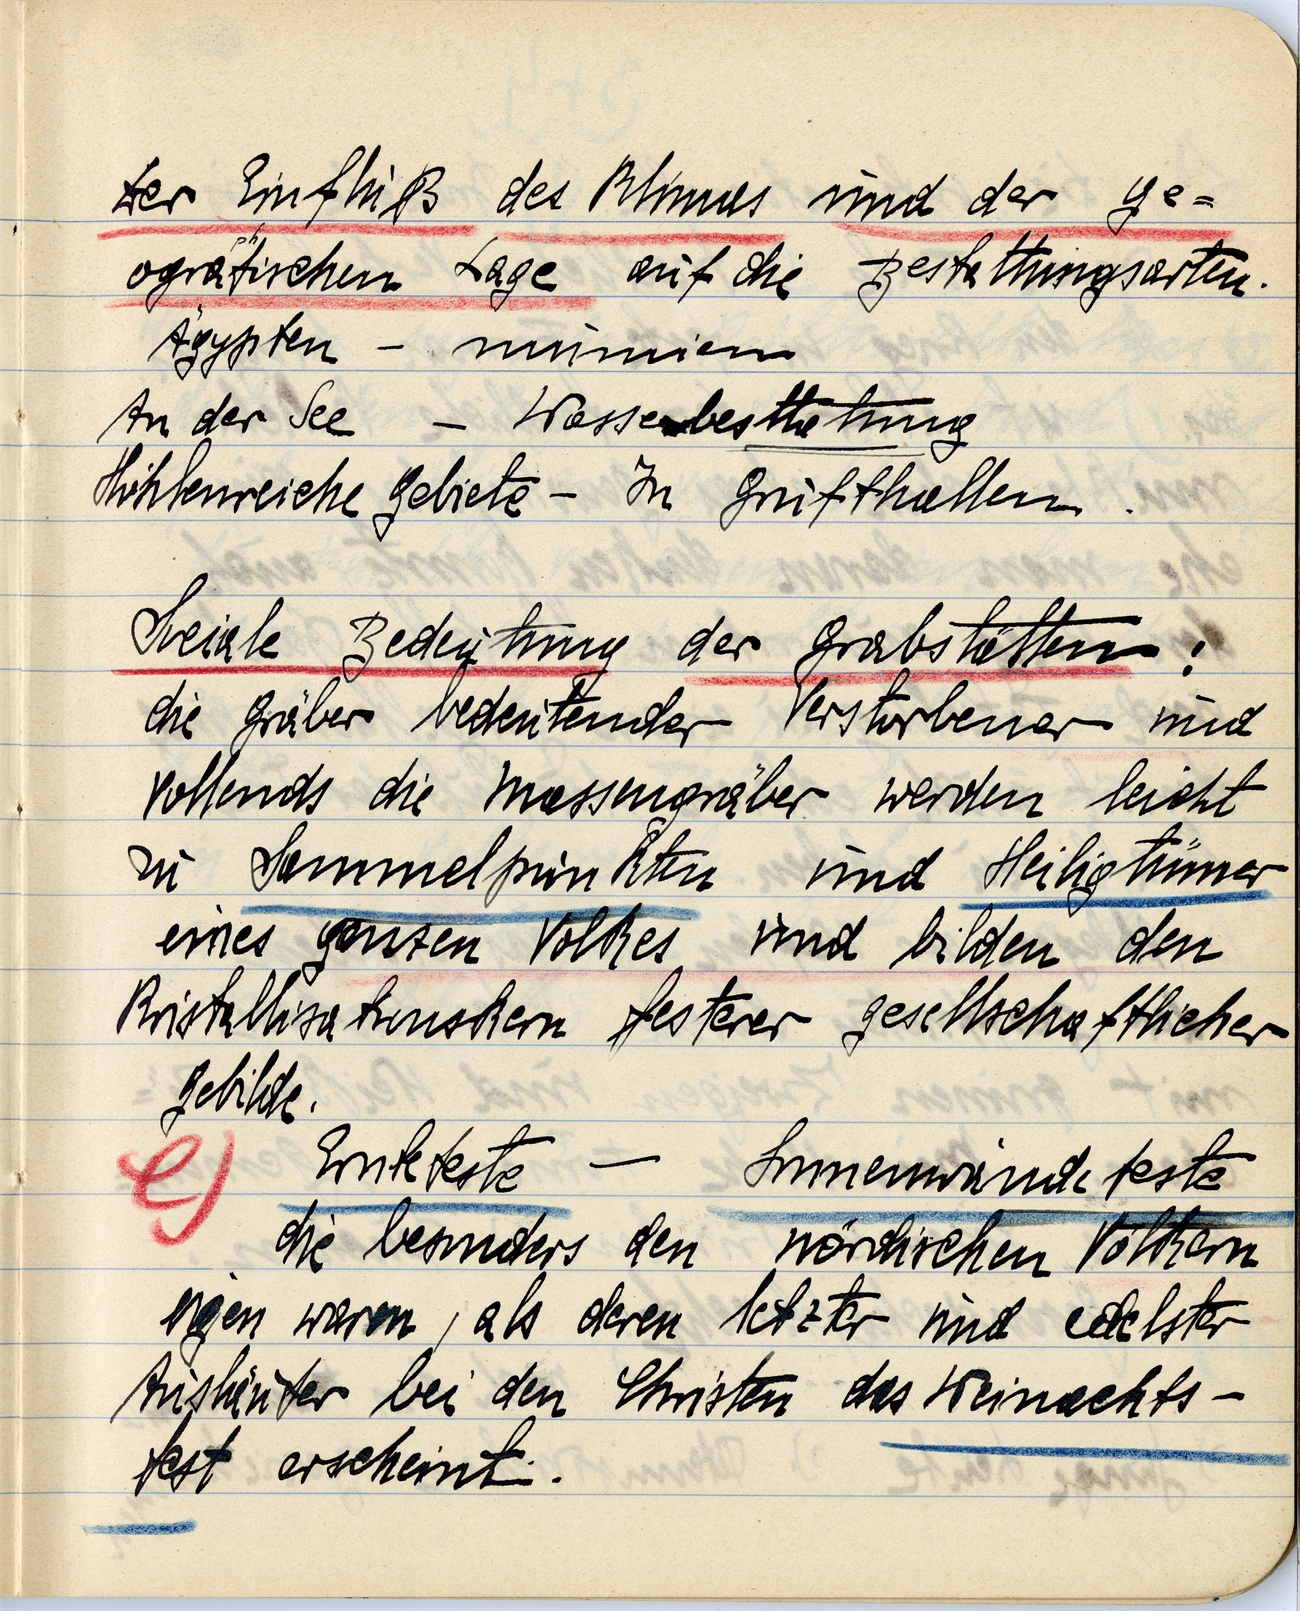 Der Einfluß des Klimas und der ge=
ographischen Lage auf die Bestattungsarten.
Ägypten – mumien
An der See – Wasserbestattung
Höhlenreiche gebiete – In grufthallen.
Soziale Bedeutung der grabstätten:
die gräber bedeutender Verstorbener und
vollends die massengräber werden leicht
zu Sammelpunkten und Heiligtümer
eines ganzen Volkes und bilden den
Kristallisationskern festerer gesellschaftlicher
gebilde.
e) Erntefeste – Sonnenwändefeste
die besonders den nördischen Völkern
eigen waren, als deren letzter und edelster
Ausläufer bei den Christen das Weinachts-
fest erscheint.